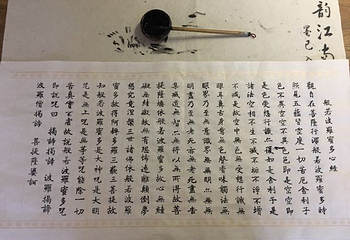 韵江南
般若波羅蜜多心經
觀自在菩薩行深般若波羅蜜多時
照見五蘊皆空度一切苦厄舍利子
色不異空空不異色色即是空空即
是色受想行識亦復如是舍利子是
諸法空相不生不滅不垢不淨不增
不減是故空中無色無受想行識無
眼耳鼻舌身意無色聲香味觸法無
眼界乃至無意識界無無明亦無無
明盡乃至無老死亦無老死盡無苦
集滅道無智亦無得以無所得故菩
提薩埵依般若波羅蜜多故心無罣
礙無罣礙故無有恐怖遠離顛倒夢
想究竟涅槃三世諸佛依般若波羅
蜜多故得阿耨多羅三藐三菩提故
知般若波羅蜜多是大神咒是大明
咒是無上咒是無等等咒能除一切
苦真實不虛故說般若波羅蜜多咒
即說咒曰 揭諦揭諦 波羅揭諦
波羅僧揭諦 菩提薩婆訶